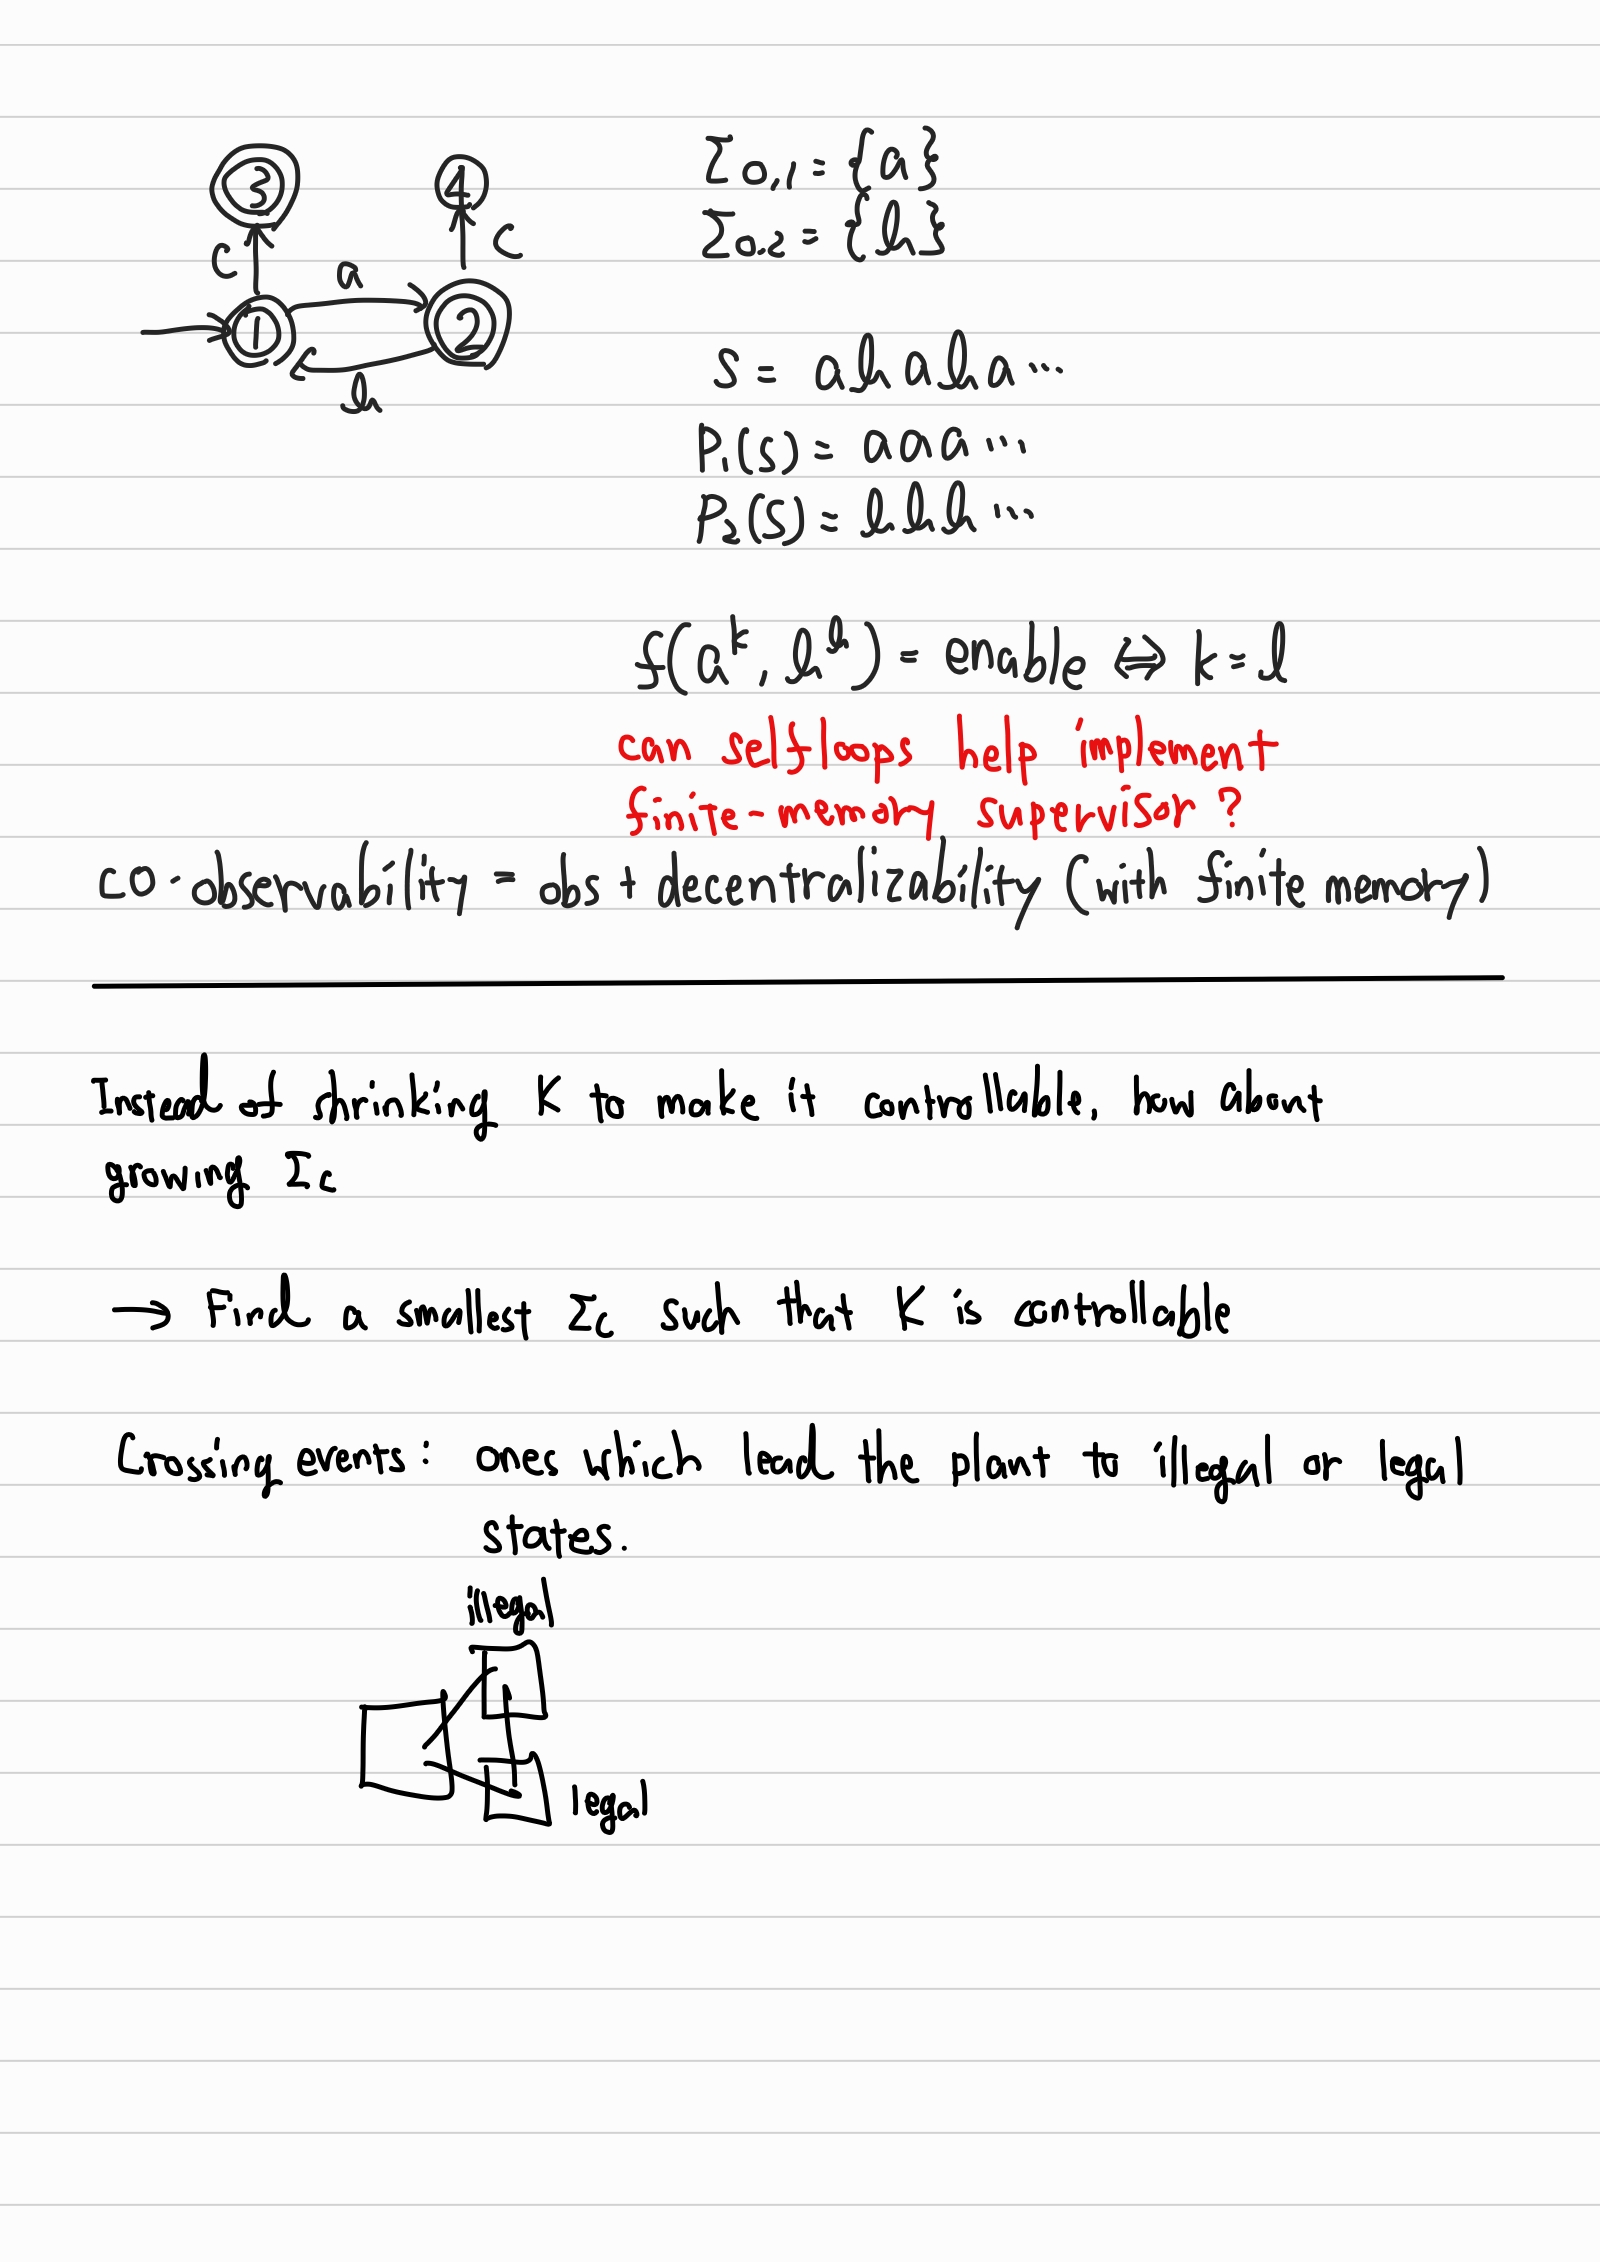 3
4
c
c
a
1
2
h
Σo,1 = {a}
Σo,2 = {h}
s = a h a h a ...
P₁(s) = a a a ...
P₂(s) = h h h ...
f(aᵏ, hʰ) = enable ⇔ k = l
can selfloops help implement
finite-memory supervisor ?
co-observability = obs + decentralizability (with finite memory)
Instead of shrinking K to make it controllable, how about
growing Σc
→ Find a smallest Σc such that K is controllable
Crossing events : ones which lead the plant to illegal or legal
states.
illegal
legal